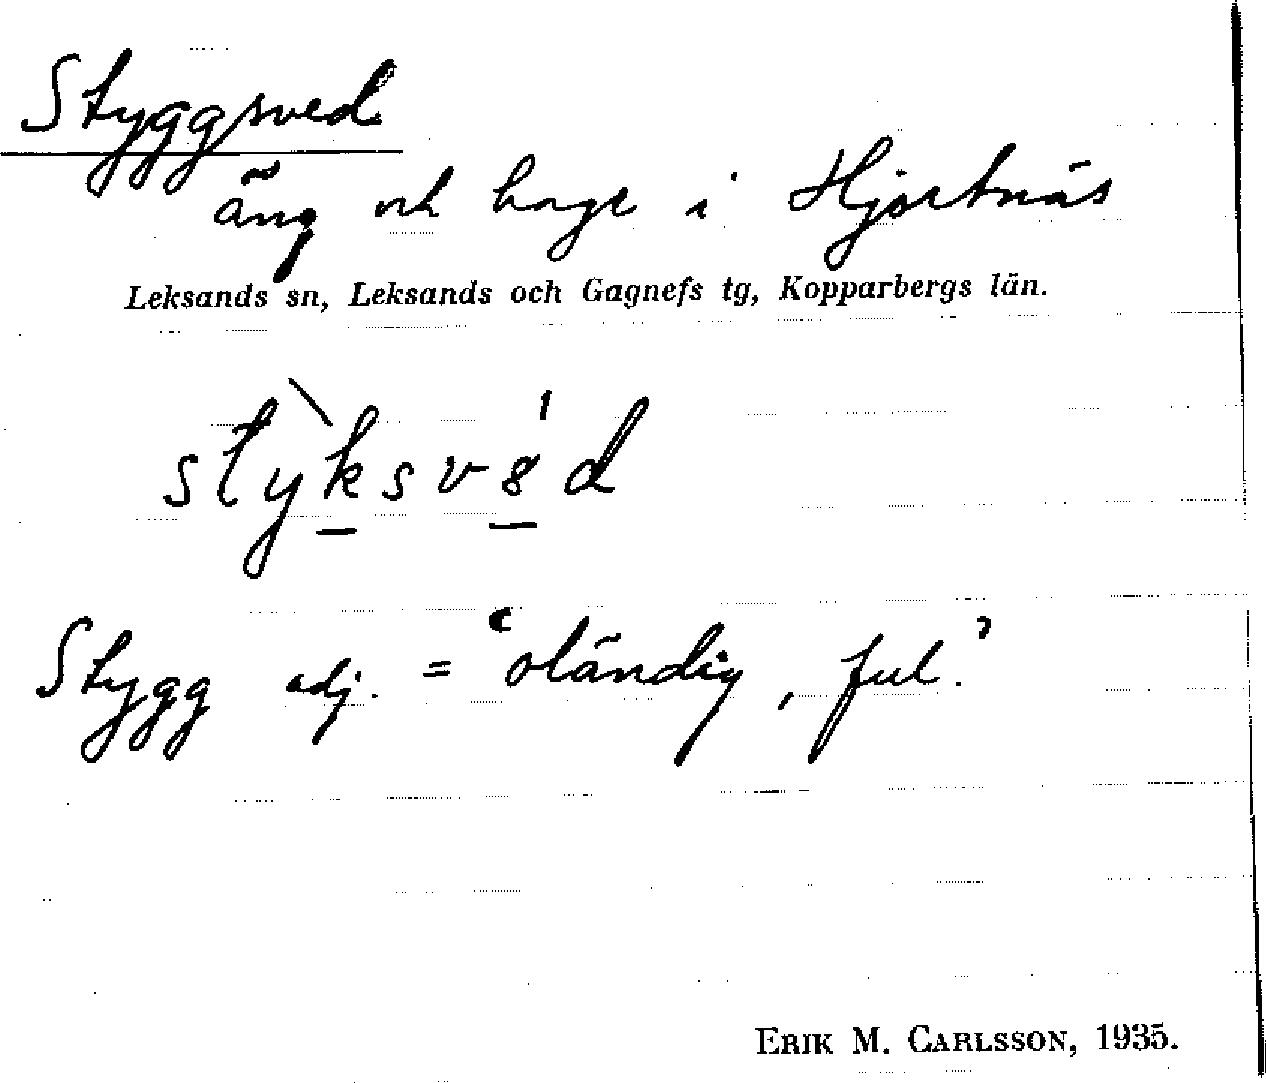 Styggsved
äng och hage i Hjortnäs
Leksands sn, Leksands och Gagnefs tg, Kopparbergs län.
stỳksv8́d
Stygg adj. = ‘oländig, ful.’
ERIK M. CARLSSON, 1935.